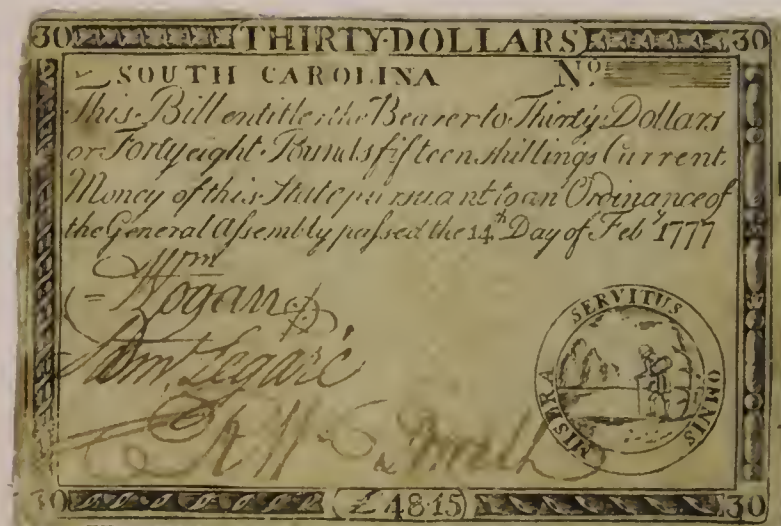 30 THIRTY·DOLLARS 30
SOUTH CAROLINA Nº
This Bill entitles the Bearer to Thirty Dollars
or Forty eight Pounds fifteen shillings Current
Money of this State pursuant to an Ordinance of
the General Assembly passed the 14th Day of Feby 1777
Wm
Logan
Saml Legaré
Smith
MISERA SERVITUS OMNIS
30 (£48·15) 30